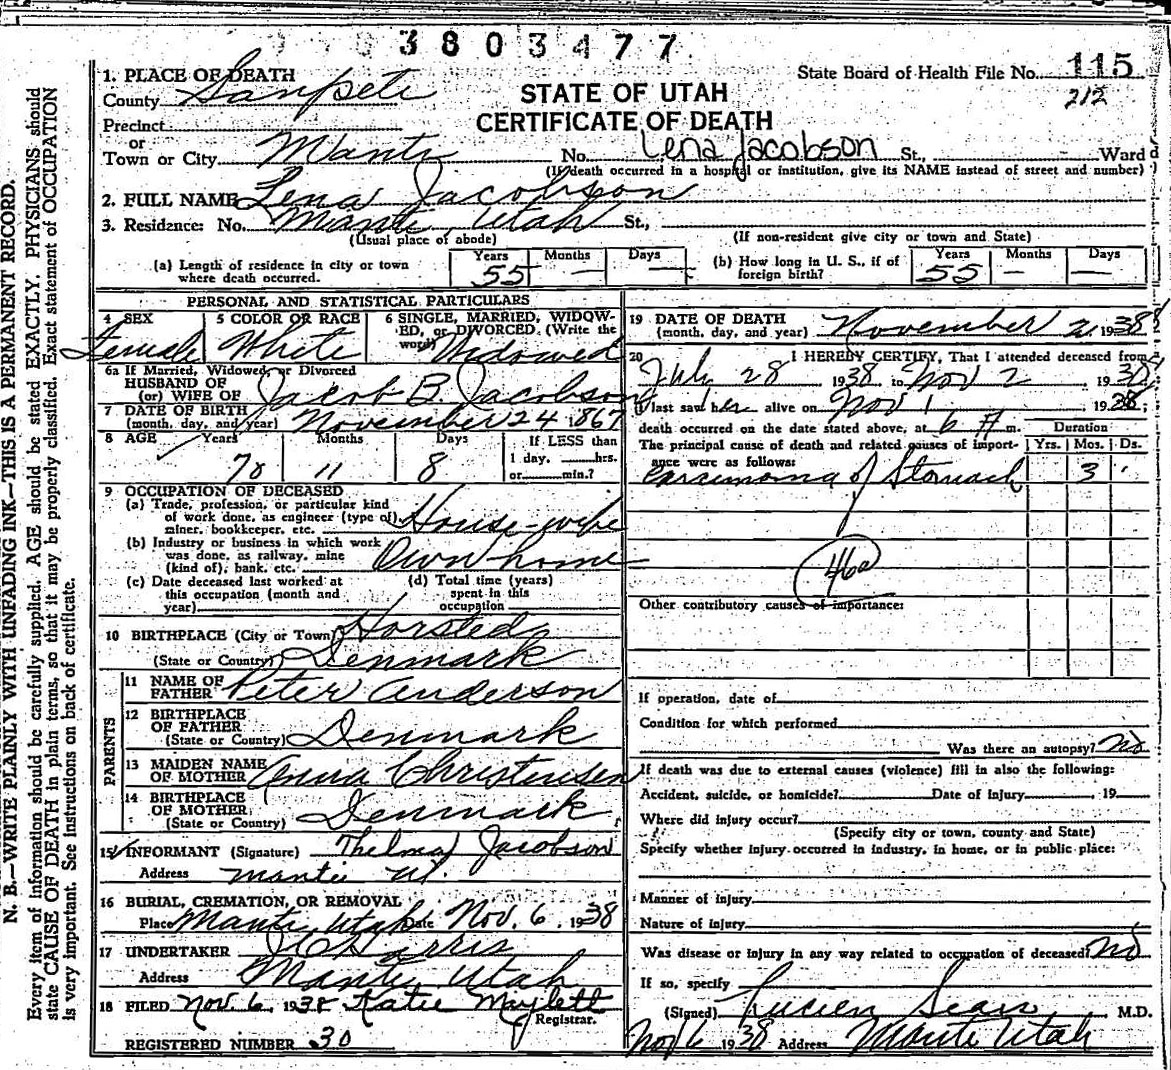 3803477
State Board of Health File No. 115
212
STATE OF UTAH
CERTIFICATE OF DEATH
1. PLACE OF DEATH
County Sanpete
Precinct
or
Town or City Manti No. Lena Jacobson St., Ward
(If death occurred in a hospital or institution, give its NAME instead of street and number)
2. FULL NAME Lena Jacobson
3. Residence: No. Manti Utah St.,
(Usual place of abode) (If non-resident give city or town and State)
(a) Length of residence in city or town where death occurred. Years 55 Months — Days —
(b) How long in U. S., if of foreign birth? Years 55 Months — Days —
PERSONAL AND STATISTICAL PARTICULARS
4 SEX Female
5 COLOR OR RACE White
6 SINGLE, MARRIED, WIDOWED, or DIVORCED. (Write the word) Widowed
6a If Married, Widowed, or Divorced
HUSBAND OF
(or) WIFE OF Jacob B. Jacobson
7 DATE OF BIRTH
(month, day, and year) November 24 1867
8 AGE Years 70 Months 11 Days 8 If LESS than 1 day, hrs. or min.?
9 OCCUPATION OF DECEASED
(a) Trade, profession, or particular kind of work done, as engineer (type of), miner, bookkeeper, etc. House-wife
(b) Industry or business in which work was done, as railway, mine (kind of), bank, etc. Own home
(c) Date deceased last worked at this occupation (month and year)
(d) Total time (years) spent in this occupation
10 BIRTHPLACE (City or Town) Horsted
(State or Country) Denmark
PARENTS
11 NAME OF FATHER Peter Anderson
12 BIRTHPLACE OF FATHER
(State or Country) Denmark
13 MAIDEN NAME OF MOTHER Anna Christensen
14 BIRTHPLACE OF MOTHER
(State or Country) Denmark
15 INFORMANT (Signature) Thelma Jacobson
Address Manti Ut.
16 BURIAL, CREMATION, OR REMOVAL
Place Manti, Utah Date Nov. 6, 1938
17 UNDERTAKER Harris
Address Manti, Utah
18 FILED Nov. 6, 1938 Katie Maylett
Registrar.
REGISTERED NUMBER 30
19 DATE OF DEATH
(month, day, and year) November 2, 1938
20 I HEREBY CERTIFY, That I attended deceased from
July 28 1938 to Nov 2 1938
I last saw her alive on Nov 1 1938;
death occurred on the date stated above, at 6 A m. Duration
The principal cause of death and related causes of importance were as follows: Yrs. Mos. Ds.
Carcinoma of Stomach 3
46a
Other contributory causes of importance:
If operation, date of
Condition for which performed
Was there an autopsy? No
If death was due to external causes (violence) fill in also the following:
Accident, suicide, or homicide? Date of injury , 19
Where did injury occur?
(Specify city or town, county and State)
Specify whether injury occurred in industry, in home, or in public place:
Manner of injury
Nature of injury
Was disease or injury in any way related to occupation of deceased? No
If so, specify
(Signed) Lucien Sears M.D.
Nov 6 1938 Address Manti Utah
N. B.—WRITE PLAINLY WITH UNFADING INK—THIS IS A PERMANENT RECORD.
Every item of information should be carefully supplied. AGE should be stated EXACTLY. PHYSICIANS should
state CAUSE OF DEATH in plain terms, so that it may be properly classified. Exact statement of OCCUPATION
is very important. See instructions on back of certificate.